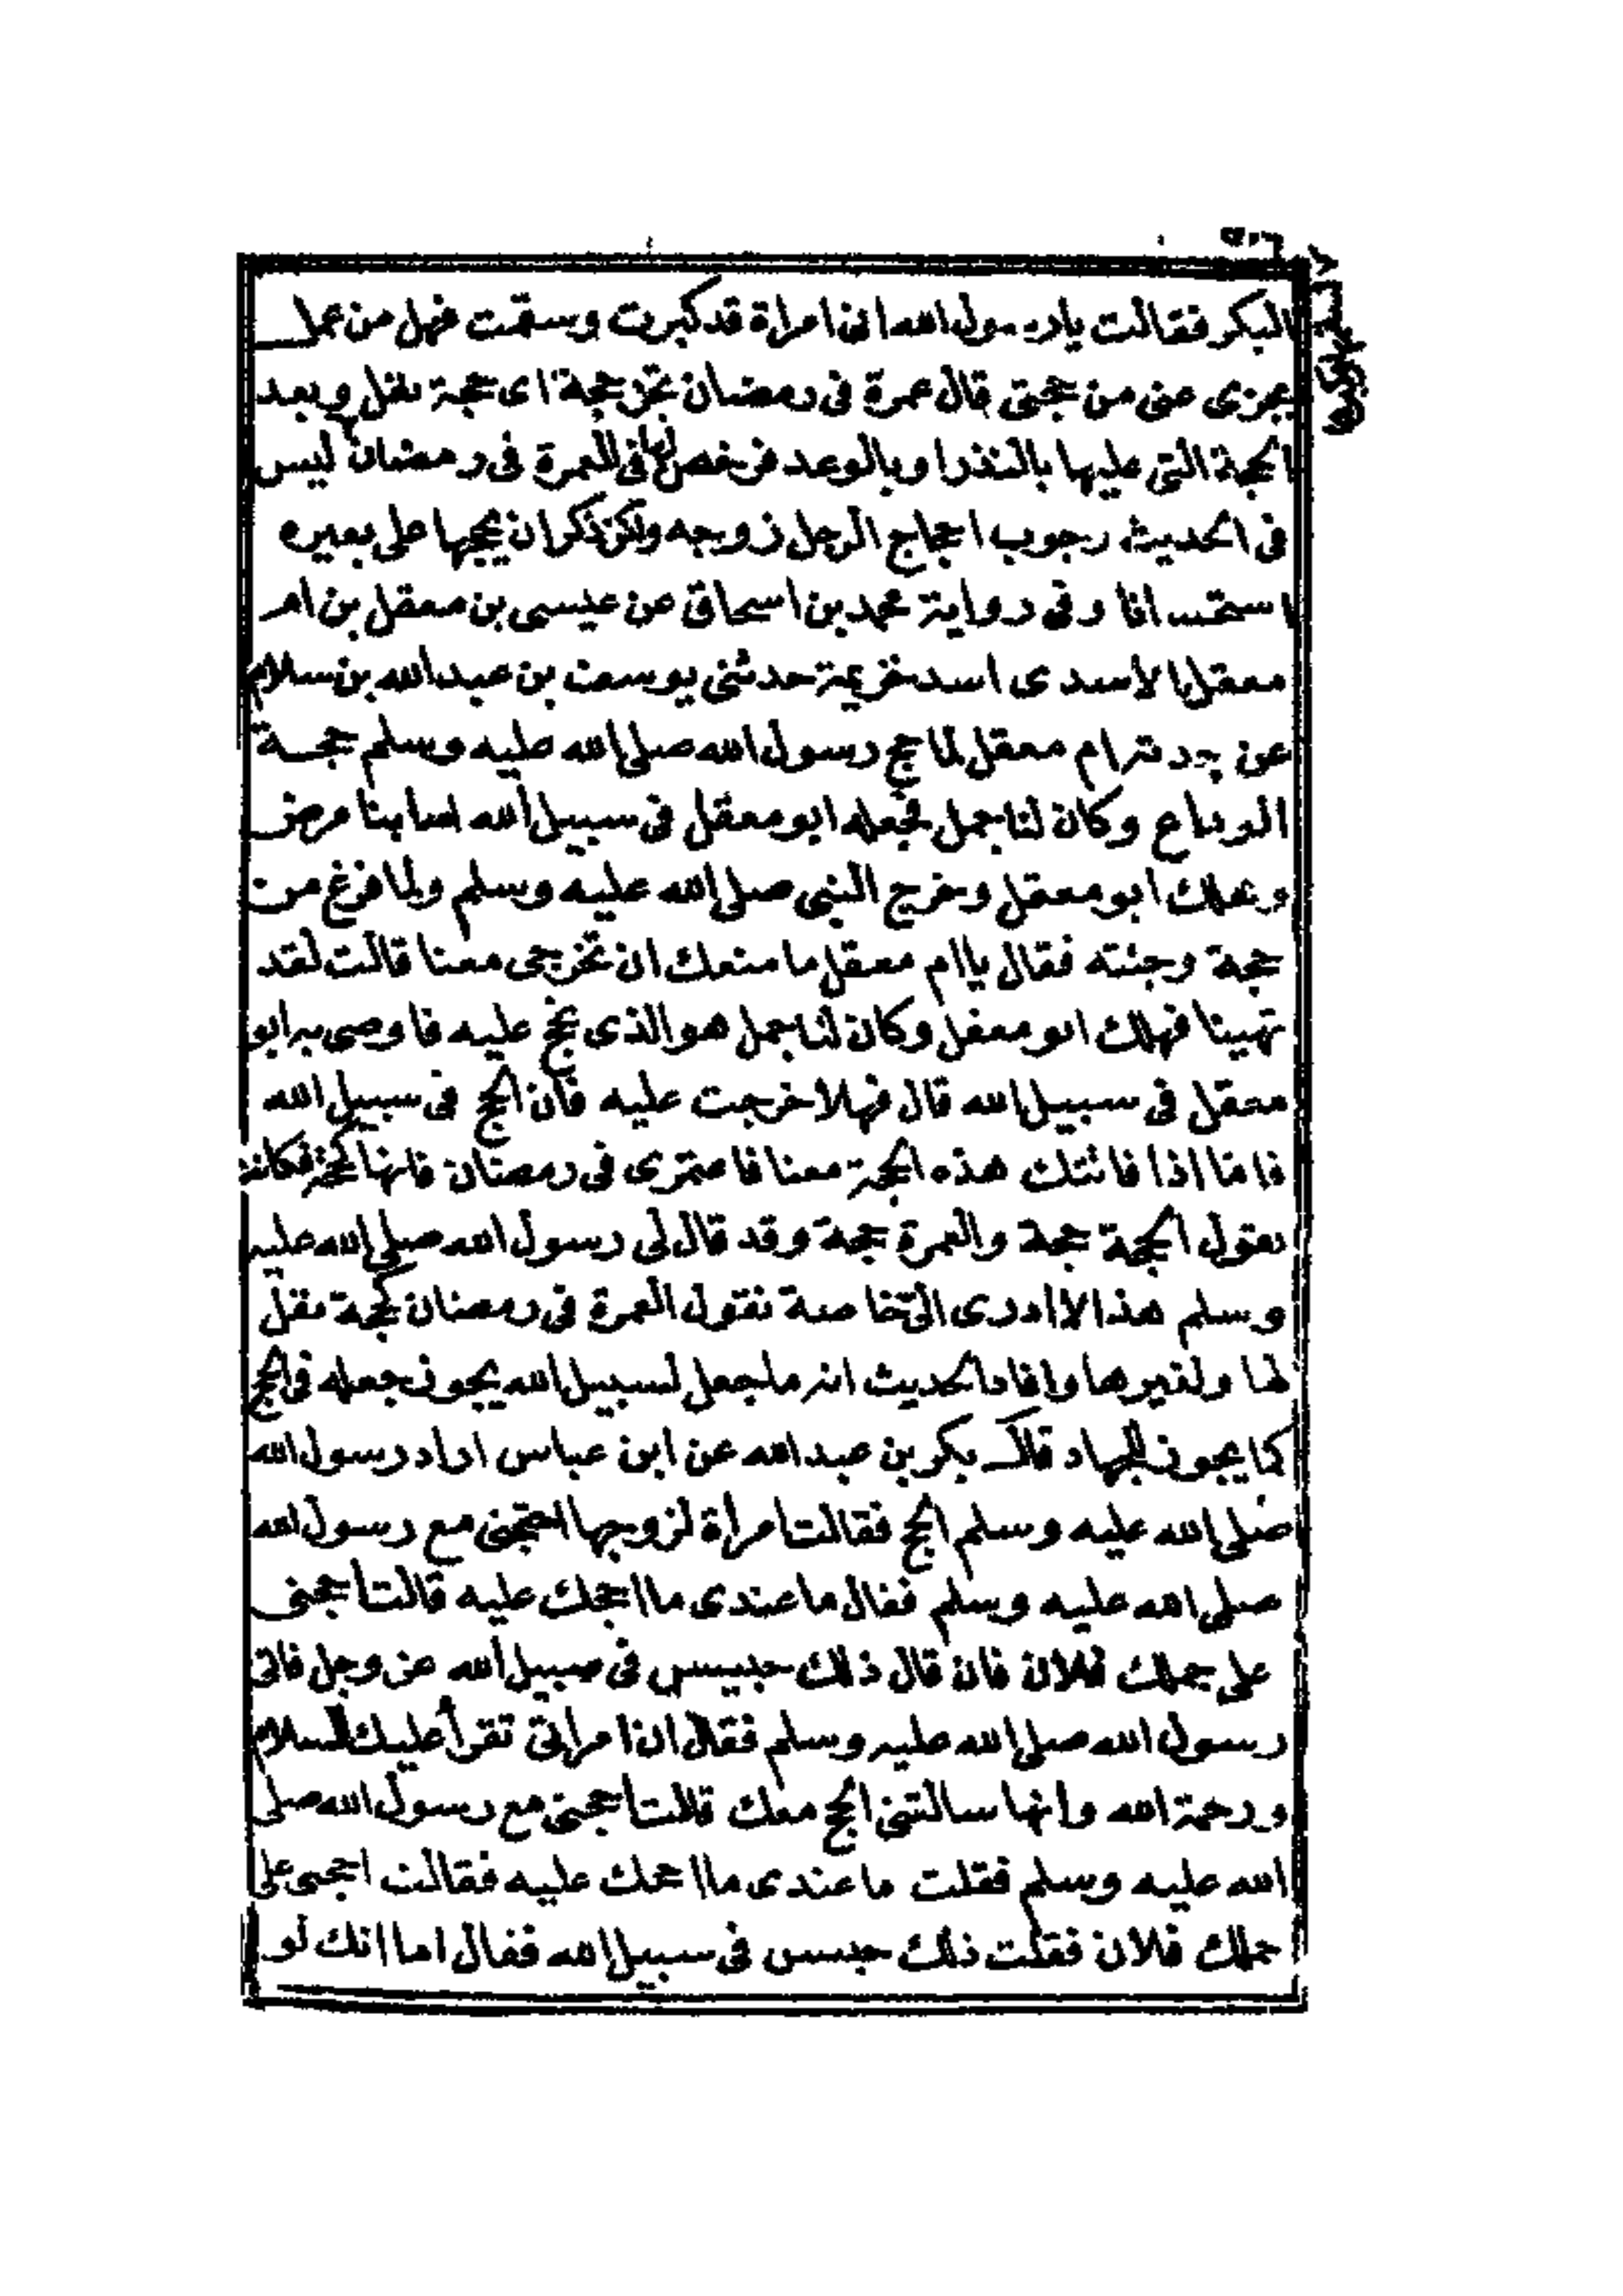 البكر فقالت يا رسول الله انى امراة قد كبرت وسقمت فهل من عمل
يجزى عنى من حجتى قال عمرة فى رمضان تجزى حجة اى حجة نفل وبعد
الحجة التى عليها بالنذر او بالوعد فرخص لها فى العمرة فى رمضان ليس
فى الحديث وجوب احجاج الرجل زوجه ولكن ذكر ان يحجها على بعيره
استحسانا وفى رواية محمد بن اسحاق عن عيسى بن معقل بن ام
معقل الاسدى اسد خزيمة حدثنى يوسف بن عبد الله بن سلام
عن جدته ام معقل لما حج رسول الله صلى الله عليه وسلم حجة
الوداع وكان لنا جمل فجعله ابو معقل فى سبيل الله اصابنا مرض
وهلك ابو معقل وخرج النبى صلى الله عليه وسلم ولما فرغ من
حجة وجئته فقال يا ام معقل ما منعك ان تخرجى معنا قالت لقد
تهيينا فهلك ابو معقل وكان لنا جمل هو الذى نحج عليه فاوصى به ابو
معقل فى سبيل الله قال فهلا خرجت عليه فان الحج فى سبيل الله
فاما اذا فاتتك هذه الحجة معنا فاعتمرى فى رمضان فانها كحجة فكانت
تقول الحجة حجة والعمرة حجة وقد قال لى رسول الله صلى الله عليه
وسلم هذا لا ادرى الى خاصة نقول العمرة فى رمضان كحجة نفل
لها ولغيرها وافاد الحديث انه ما جعل لسبيل الله يجوز جعله فى الحج
كما يجوز للجهاد قال بكر بن عبد الله عن ابن عباس اراد رسول الله
صلى الله عليه وسلم الحج فقالت امراة لزوجها احججنى مع رسول الله
صلى الله عليه وسلم فقال ما عندى ما احجك عليه قالت احجنى
على جملك فلان فان قال ذلك حبيس فى سبيل الله عز وجل فاتى
رسول الله صلى الله عليه وسلم فقال ان امراتى تقرأ عليك السلام
ورحمة الله وانها سالتنى الحج معك قالت احجنى مع رسول الله صلى
الله عليه وسلم فقلت ما عندى ما احجك عليه فقالت احجنى على
جملك فلان فقلت ذلك حبيس فى سبيل الله فقال اما انك لو